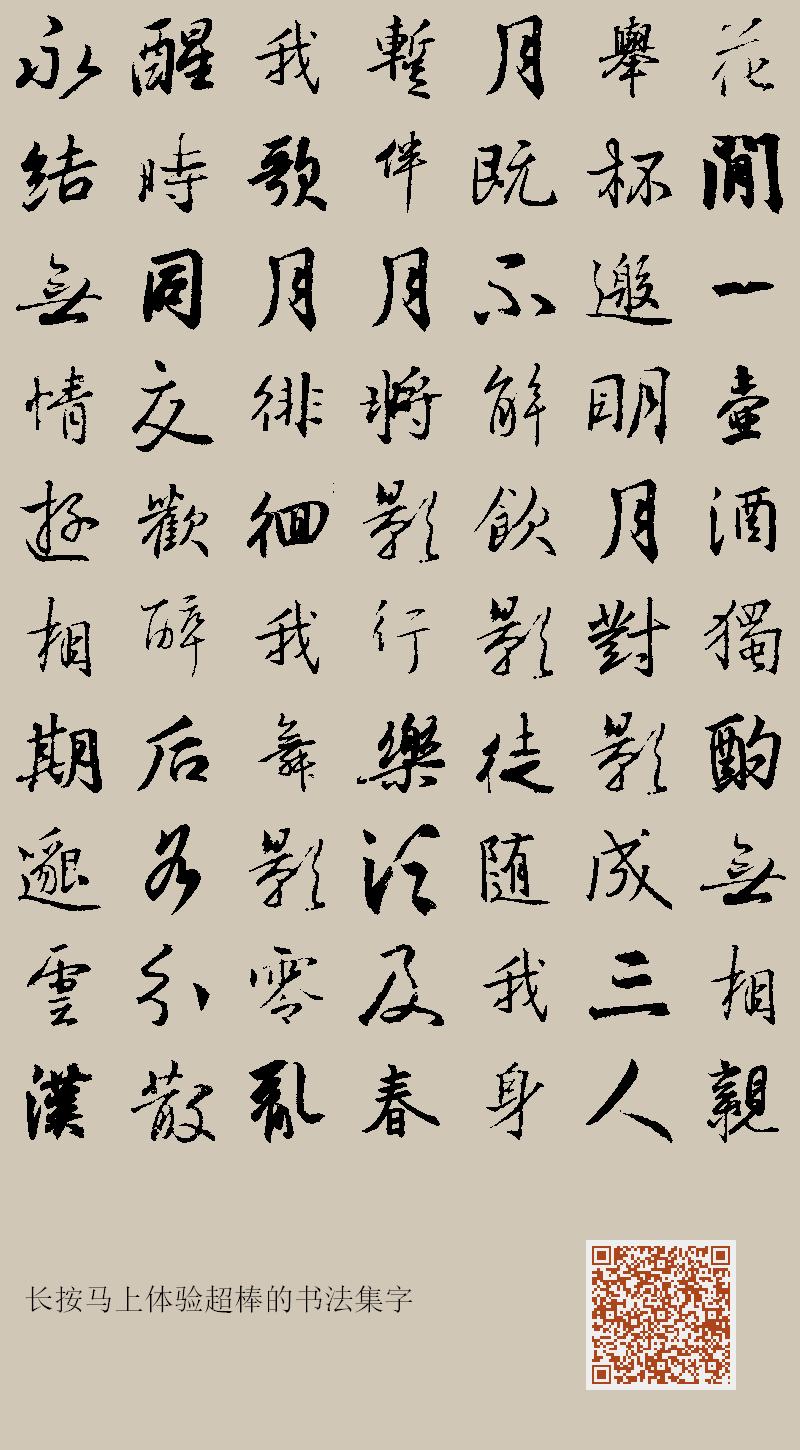 花間一壺酒獨酌無相親
舉杯邀明月對影成三人
月既不解飲影徒随我身
暫伴月將影行樂須及春
我歌月徘徊我舞影零亂
醒時同交歡醉后各分散
永結無情遊相期邈雲漢
长按马上体验超棒的书法集字